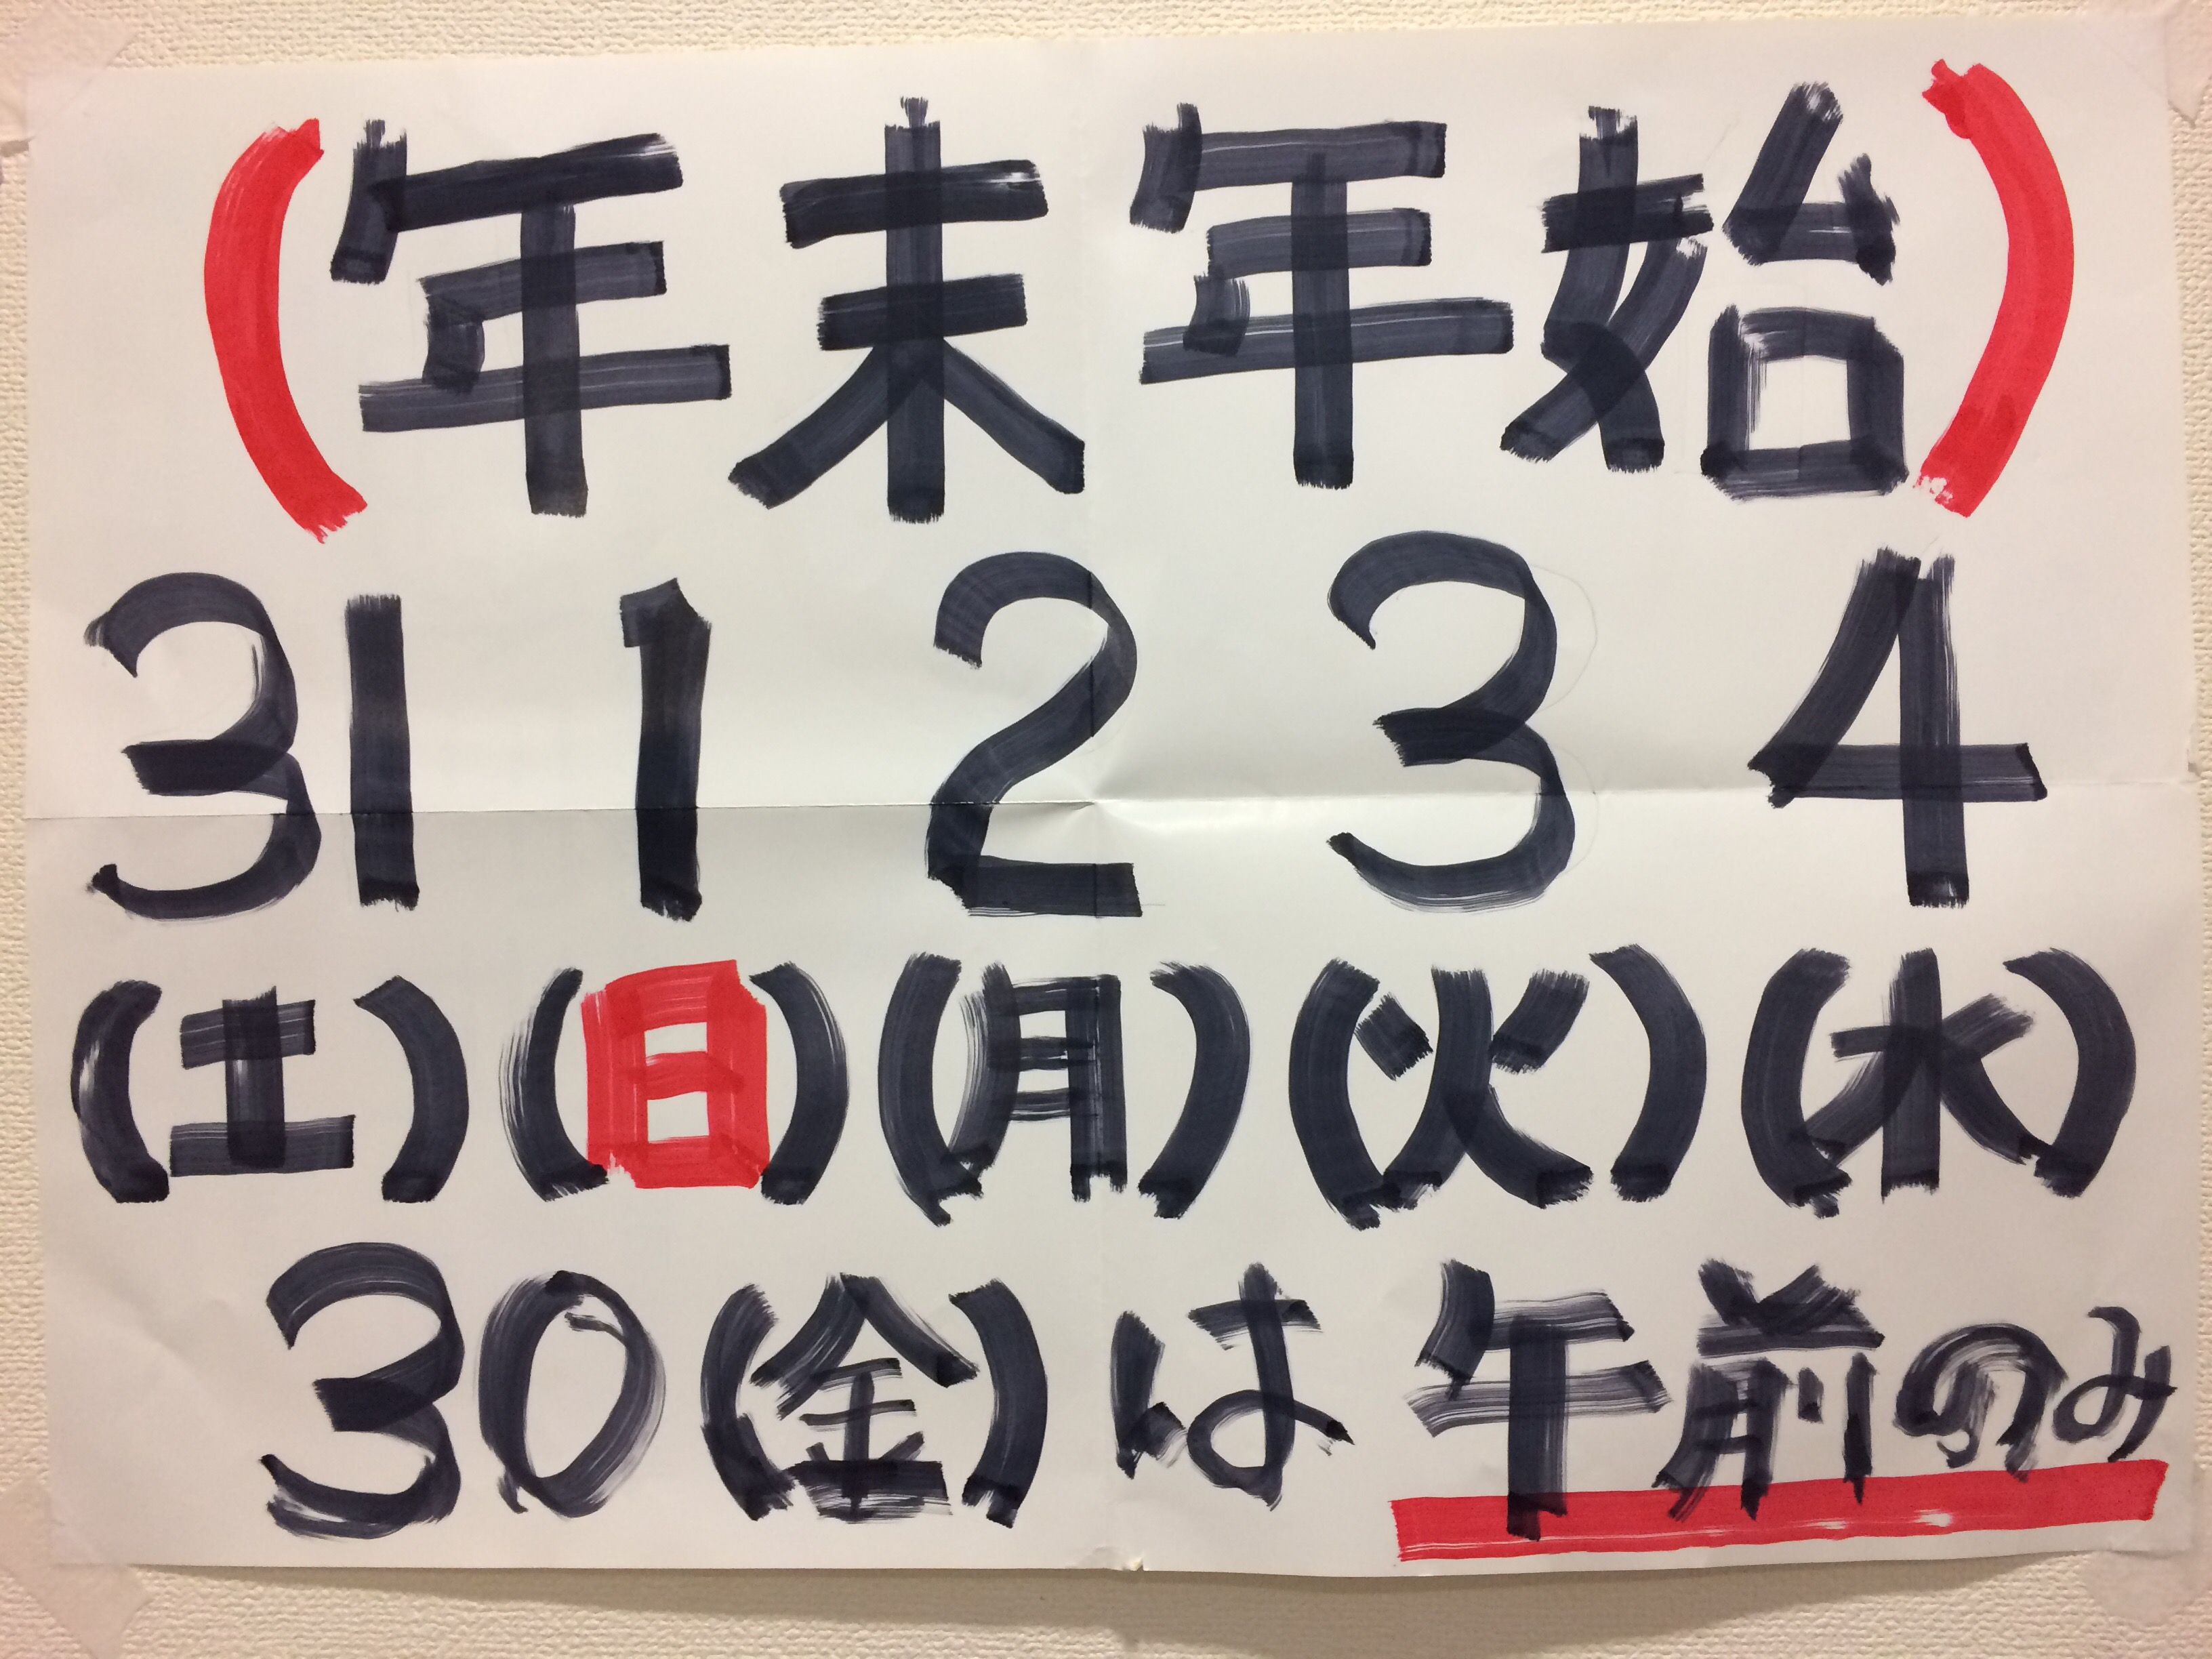 (年末年始)
31 1 2 3 4
(土)(日)(月)(火)(水)
30(金)は午前のみ